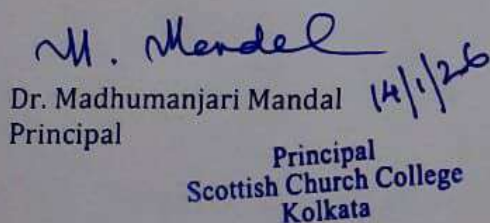 M. Mandal
Dr. Madhumanjari Mandal 14/1/26
Principal
Principal
Scottish Church College
Kolkata